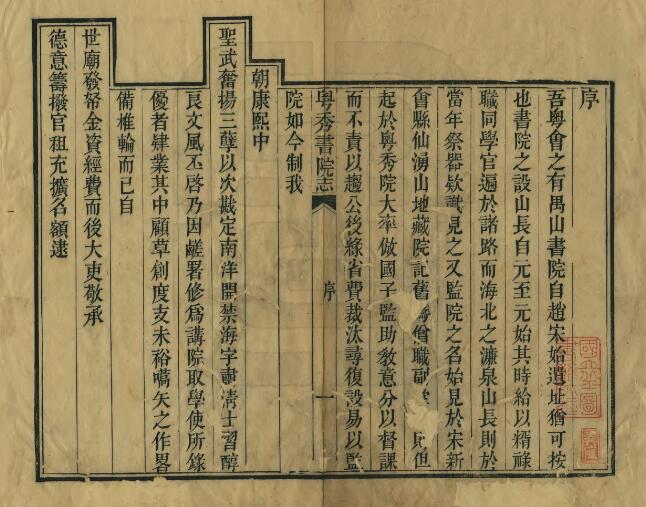 序
吾粵會之有禺山書院自趙宋始遺址猶可按
也書院之設山長自元至元始其時給以糈祿
職同學官遍於諸路而海北之濂泉山長則於
當年祭器欵識見之又監院之名始見於宋新
會縣仙湧山地藏院記舊為會職副 民但
起於粵秀院大率倣國子監助教意分以督課
而不責以趨公後緣省費裁汰尋復設易以監
粵秀書院志 序 一
院如今制我
朝康熙中
聖武奮揚三孽以次戡定南洋開禁海宇肅淸士習醇
良文風丕啓乃因鹾署修爲講院取學使所錄
優者肄業其中顧草創度支未裕嚆矢之作畧
備椎輪而已自
世廟發帑金資經費而後大吏敬承
德意籌撥官租充擴名額逮